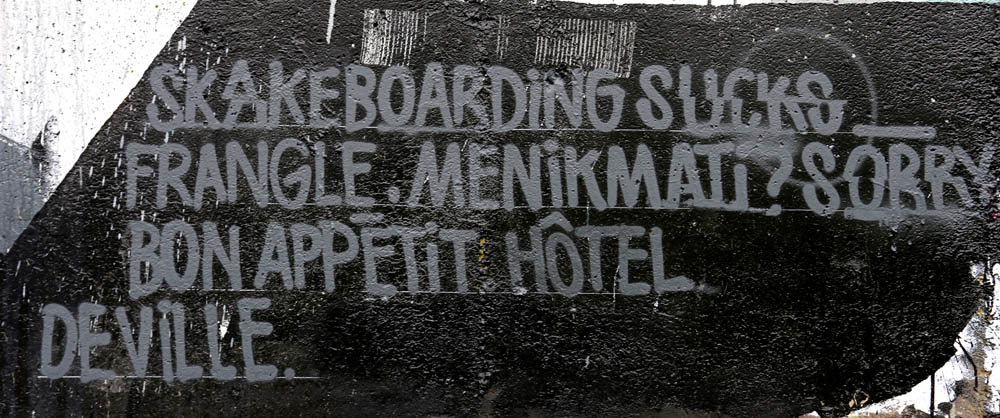 SKAKEBOARDiNG SUCKS_
FRANGLE.MENiKMATi?SORRY
BON APPETiT HÔTEL
DEViLLE.